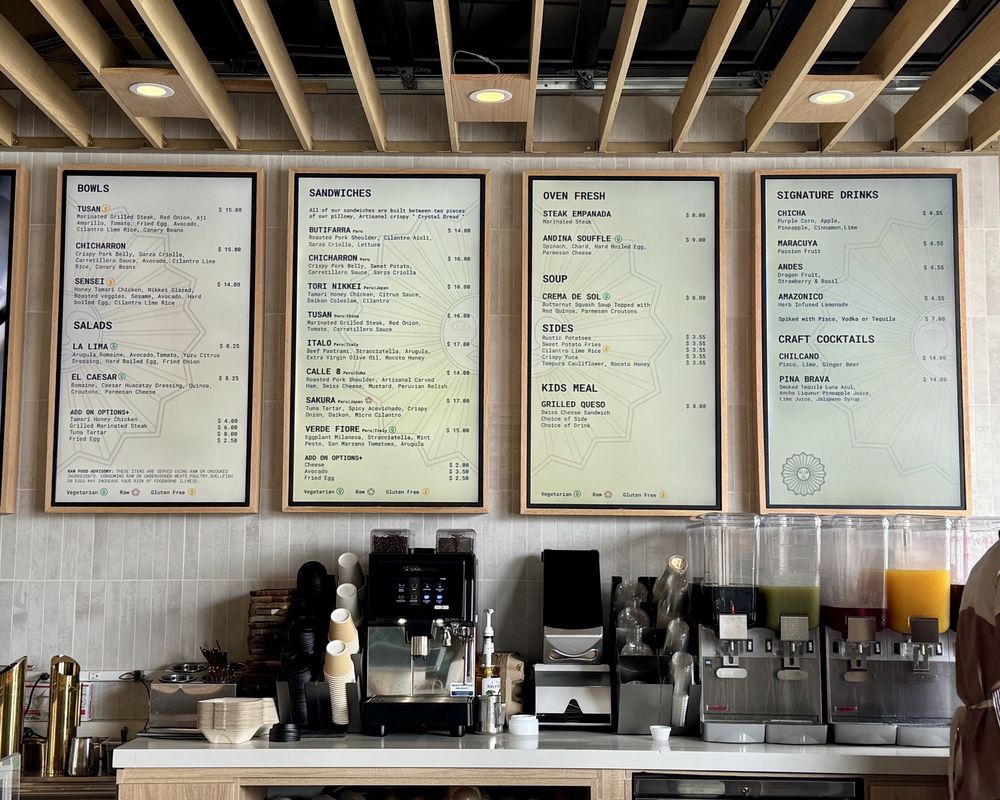 BOWLS
TUSAN $ 15.00
Marinated Grilled Steak, Red Onion, Aji
Amarillo, Tomato, Fried Egg, Avocado,
Cilantro Lime Rice, Canary Beans
CHICHARRON $ 15.00
Crispy Pork Belly, Sarza Criolla,
Carretillero Sauce, Avocado, Cilantro Lime
Rice, Canary Beans
SENSEI $ 14.00
Honey Tamari Chicken, Nikkei Glazed,
Roasted veggies, Sesame, Avocado, Hard
boiled Egg, Cilantro Lime Rice
SALADS
LA LIMA $ 8.25
Arugula, Romaine, Avocado, Tomato, Yuzu Citrus
Dressing, Hard Boiled Egg, Fried Onion
EL CAESAR $ 8.25
Romaine, Caesar Huacatay Dressing, Quinoa,
Croutons, Parmesan Cheese
ADD ON OPTIONS+
Tamari Honey Chicken $ 4.00
Grilled Marinated Steak $ 6.00
Tuna Tartar $ 8.00
Fried Egg $ 2.50
RAW FOOD ADVISORY: THESE ITEMS ARE SERVED USING RAW OR UNCOOKED
INGREDIENTS. CONSUMING RAW OR UNDERCOOKED MEATS, POULTRY, SHELLFISH
OR EGGS MAY INCREASE YOUR RISK OF FOODBORNE ILLNESS.
Vegetarian Raw Gluten Free
SANDWICHES
All of our sandwiches are built between two pieces
of our pillowy, Artisanal crispy " Crystal Bread "
BUTIFARRA Peru $ 14.00
Roasted Pork Shoulder, Cilantro Aioli,
Sarza Criolla, Lettuce
CHICHARRON Peru $ 16.00
Crispy Pork Belly, Sweet Potato,
Carretillero Sauce, Sarza Criolla
TORI NIKKEI Peru|Japan $ 16.00
Tamari Honey Chicken, Citrus Sauce,
Daikon Coleslaw, Cilantro
TUSAN Peru|China $ 16.00
Marinated Grilled Steak, Red Onion,
Tomato, Carretillero Sauce
ITALO Peru|Italy $ 17.00
Beef Pastrami, Stracciatella, Arugula,
Extra Virgin Olive Oil, Rocoto Honey
CALLE 8 Peru|Cuba $ 14.00
Roasted Pork Shoulder, Artisanal Carved
Ham, Swiss Cheese, Mustard, Peruvian Relish
SAKURA Peru|Japan $ 17.00
Tuna Tartar, Spicy Acevichado, Crispy
Onion, Daikon, Micro Cilantro
VERDE FIORE Peru|Italy $ 15.00
Eggplant Milanesa, Stracciatella, Mint
Pesto, San Marzano Tomatoes, Arugula
ADD ON OPTIONS+
Cheese $ 2.00
Avocado $ 3.50
Fried Egg $ 2.50
Vegetarian Raw Gluten Free
OVEN FRESH
STEAK EMPANADA $ 8.00
Marinated Steak
ANDINA SOUFFLE $ 9.00
Spinach, Chard, Hard Boiled Egg,
Parmesan Cheese
SOUP
CREMA DE SOL $ 8.00
Butternut Squash Soup Topped with
Red Quinoa, Parmesan Croutons
SIDES
Rustic Potatoes $ 3.55
Sweet Potato Fries $ 3.55
Cilantro Lime Rice $ 3.55
Crispy Yuca $ 3.55
Tempura Cauliflower, Rocoto Honey $ 3.55
KIDS MEAL
GRILLED QUESO $ 8.00
Swiss Cheese Sandwich
Choice of Side
Choice of Drink
Vegetarian Raw Gluten Free
SIGNATURE DRINKS
CHICHA $ 4.55
Purple Corn, Apple,
Pineapple, Cinnamon, Lime
MARACUYA $ 4.55
Passion Fruit
ANDES $ 4.55
Dragon Fruit,
Strawberry & Basil
AMAZONICO $ 4.55
Herb Infused Lemonade
Spiked with Pisco, Vodka or Tequila $ 7.00
CRAFT COCKTAILS
CHILCANO $ 14.00
Pisco, Lime, Ginger Beer
PINA BRAVA $ 14.00
Smoked Tequila Luna Azul,
Ancho Liqueur Pineapple Juice,
Lime Juice, Jalapeno Syrup